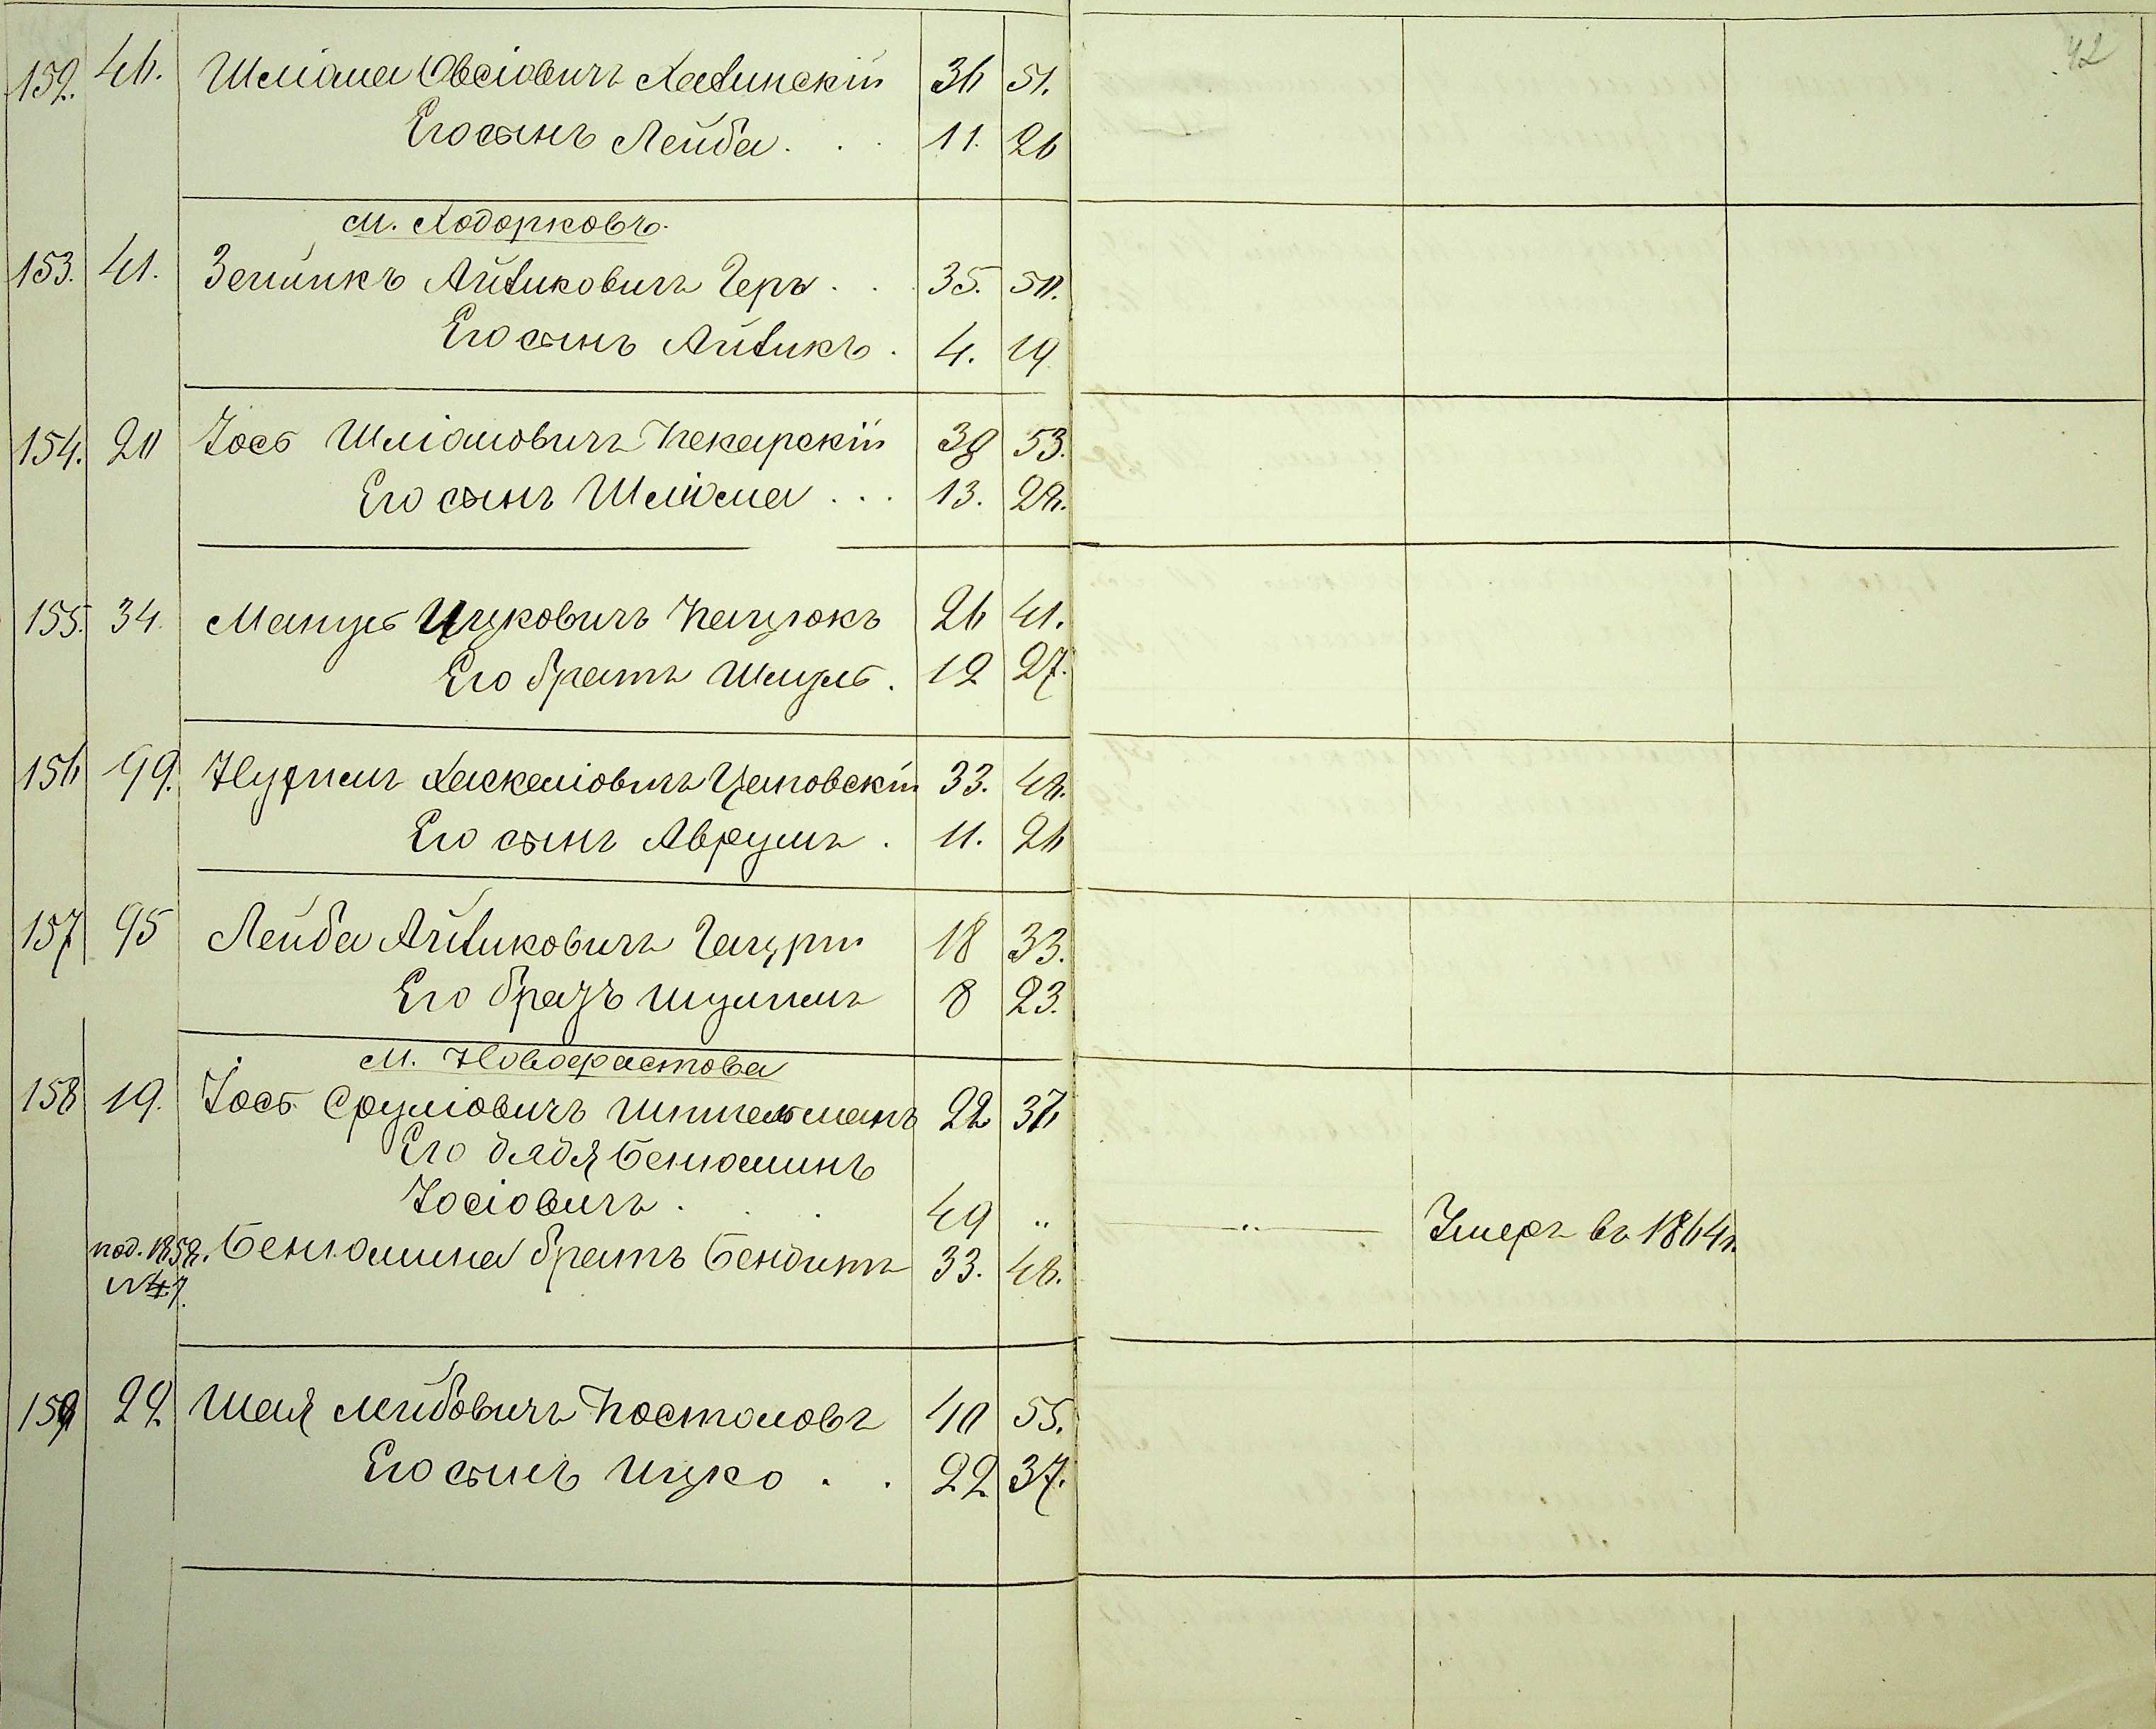 42
152. 46. Шліома Овсіовичъ Хазинскій 36 51.
Его сынъ Лейба . . . 11. 26
м. Ходорковъ.
153. 41. Зейликъ Айзиковичъ Геръ . . 35. 50.
Его сынъ Айзикъ . 4. 19
154. 20 Іось Шліомовичъ Пекарскій 38 53.
Его сынъ Шліома . . . 13. 28.
155. 34. Мануль Ицковичъ Кацюкъ 26 41.
Его братъ Шмуль . 12 27.
156 99. Нухимъ Хаскеліовичъ Цаповскій 33. 48.
Его сынъ Аврумъ . 11. 26
157 95 Лейба Айзиковичъ 18 33.
Его братъ 8 23.
м. Новофастова
158 19. Іось Сруліовичъ Шпигельманъ 22 37
Его дядя Бенюминъ
Іосіовичъ . . . 49 „ „ Умеръ въ 1864 г.
под. 1858. Бенюмина братъ Бендитъ 33. 48.
№ 47.
159 22 Шая Лейбовичъ Постоловъ 40 55.
Его сынъ Ицко . . 22 37.